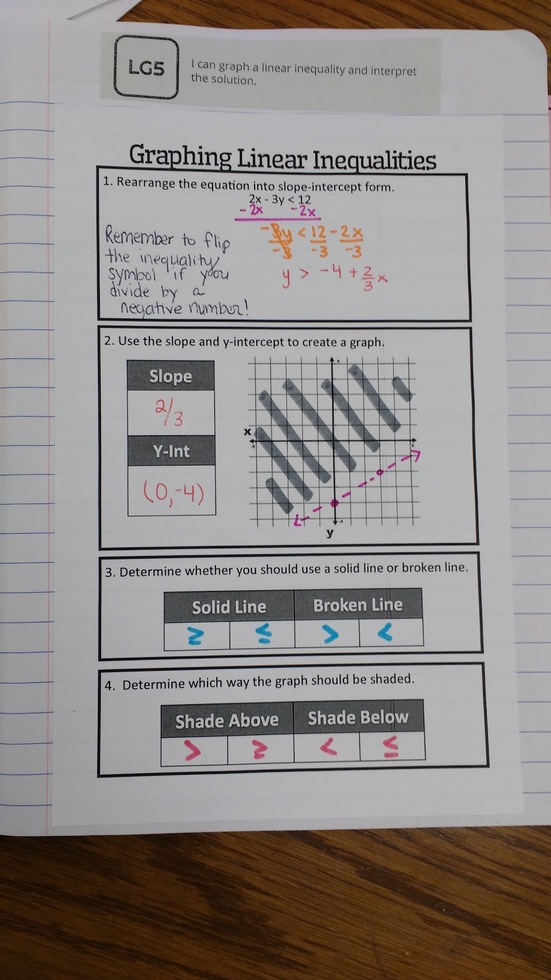 LG5
I can graph a linear inequality and interpret
the solution.
Graphing Linear Inequalities
1. Rearrange the equation into slope-intercept form.
2x - 3y < 12
-2x -2x
-3y < 12 - 2x
-3 -3 -3
y > -4 + 2/3 x
Remember to flip
the inequality
symbol if you
divide by a
negative number!
2. Use the slope and y-intercept to create a graph.
Slope
2/3
Y-Int
(0,-4)
x
y
3. Determine whether you should use a solid line or broken line.
Solid Line Broken Line
≥ ≤ > <
4. Determine which way the graph should be shaded.
Shade Above Shade Below
> ≥ < ≤